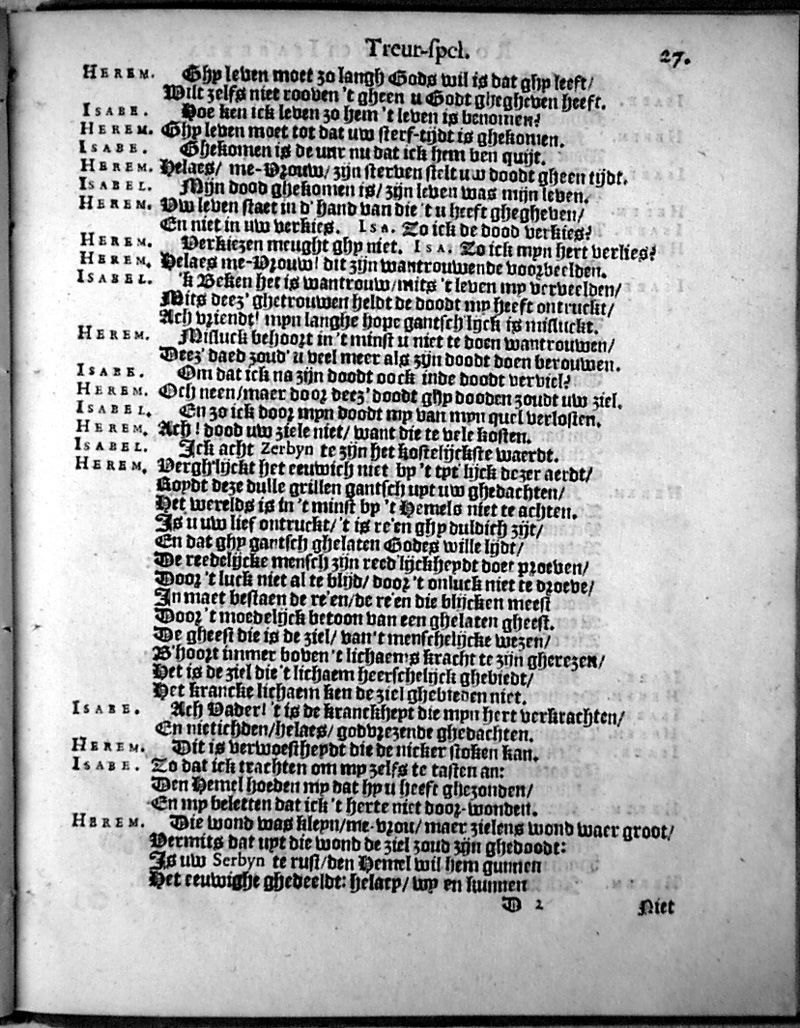 Treur-spel. 27.
HEREM. Ghy leven moet zo langh Gods wil is dat ghy leeft/
Wilt zelfs niet rooven 't gheen u Godt ghegheven heeft.
ISABE. Hoe ken ick leven zo hem 't leven is benomen?
HEREM. Ghy leven moet tot dat uw sterf-tijdt is ghekomen.
ISABE. Ghekomen is de uur nu dat ick hem ben quijt.
HEREM. Helaes/ me-Vrouw/ zijn sterven stelt uw doodt gheen tijdt.
ISABEL. Mijn dood ghekomen is/ zijn leven was mijn leven.
HEREM. Uw leven staet in d' hand van die 't u heeft ghegheven/
En niet in uw verkies. ISA. Zo ick de dood verkies?
HEREM. Verkiezen meught ghy niet. ISA. Zo ick myn hert verlies?
HEREM. Helaes me-Vrouw! dit zijn wantrouwende voorbeelden.
ISABEL. 'k Beken het is wantrouw/ mits 't leven my verveelden/
Mits deez' ghetrouwen heldt de doodt my heeft ontruckt/
Ach vriendt! myn langhe hope gantsch lijck is misluckt.
HEREM. Misluck behoort in 't minst u niet te doen wantrouwen/
Deez' daed zoud' u veel meer als zijn doodt doen berouwen.
ISABE. Om dat ick na zijn doodt oock inde doodt verviel?
HEREM. Och neen/ maer door deez' doodt ghy dooden zoudt uw ziel.
ISABEL. En zo ick door myn doodt my van myn quel verlosten.
HEREM. Ach! dood uw ziele niet/ want die te vele kosten.
ISABEL. Ick acht Zerbyn te zijn het kostelijckste waerdt.
HEREM. Vergh'lijckt het eeuwich niet by 't tyt'lijck dezer aerdt/
Roydt deze dulle grillen gantsch uyt uw ghedachten/
Het werelds is in 't minst by 't Hemels niet te achten.
Is u uw lief ontruckt/ 't is re'en ghy duldich zijt/
En dat ghy gantsch ghelaten Godes wille lydt/
De reedelijcke mensch zijn reed'lijckheydt doet proeven/
Door 't luck niet al te blijd/ door 't onluck niet te droeve/
In maet bestaen de re'en/ de re'en die blijcken meest
Door 't moedelijck betoon van een ghelaten gheest.
De gheest die is de ziel/ van 't menschelijcke wezen/
B'hoort immer boven 't lichaems kracht te zijn gherezen/
Het is de ziel die 't lichaem heerschelijck ghebiedt/
Het krancke lichaem ken de ziel ghebieden niet.
ISABE. Ach Vader! 't is de kranckheyt die myn hert verkrachten/
En nietichden/ helaes/ godvrezende ghedachten.
HEREM. Dit is verwoestheydt die de nicker stoken kan.
ISABE. Zo dat ick trachten om my zelfs te tasten an:
Den Hemel hoeden my dat hy u heeft ghezonden/
En my beletten dat ick 't herte niet door-wonden.
HEREM. Die wond was kleyn/ me-vrou/ maer zielens wond waer groot/
Vermits dat uyt die wond de ziel zoud zijn ghedoodt:
Is uw Serbyn te rust/ den Hemel wil hem gunnen
Het eeuwighe ghedeeldt: helacy/ wy en kunnen
D 2 Niet